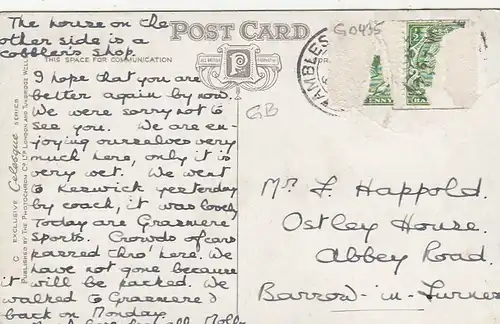 The house on the
other side is a
cobbler's shop.
POST CARD
THIS SPACE FOR COMMUNICATION
I hope that you are
better again by now.
We were sorry not to
see you. We are en-
joying ourselves very
much here, only it is
very wet. We went
to Keswick yesterday
by coach, it was lovely
Today are Grasmere
Sports. Crowds of cars
passed thro' here. We
have not gone because
it will be packed. We
walked to Grasmere &
back on Monday.
AMBLES
G0435
GB
Mr F. Happold.
Ostley House.
Abbey Road.
Barrow-in-Furnes
EXCLUSIVE Celesque SERIES
PUBLISHED BY THE PHOTOCHROM CO LTD LONDON AND TUNBRIDGE WELLS